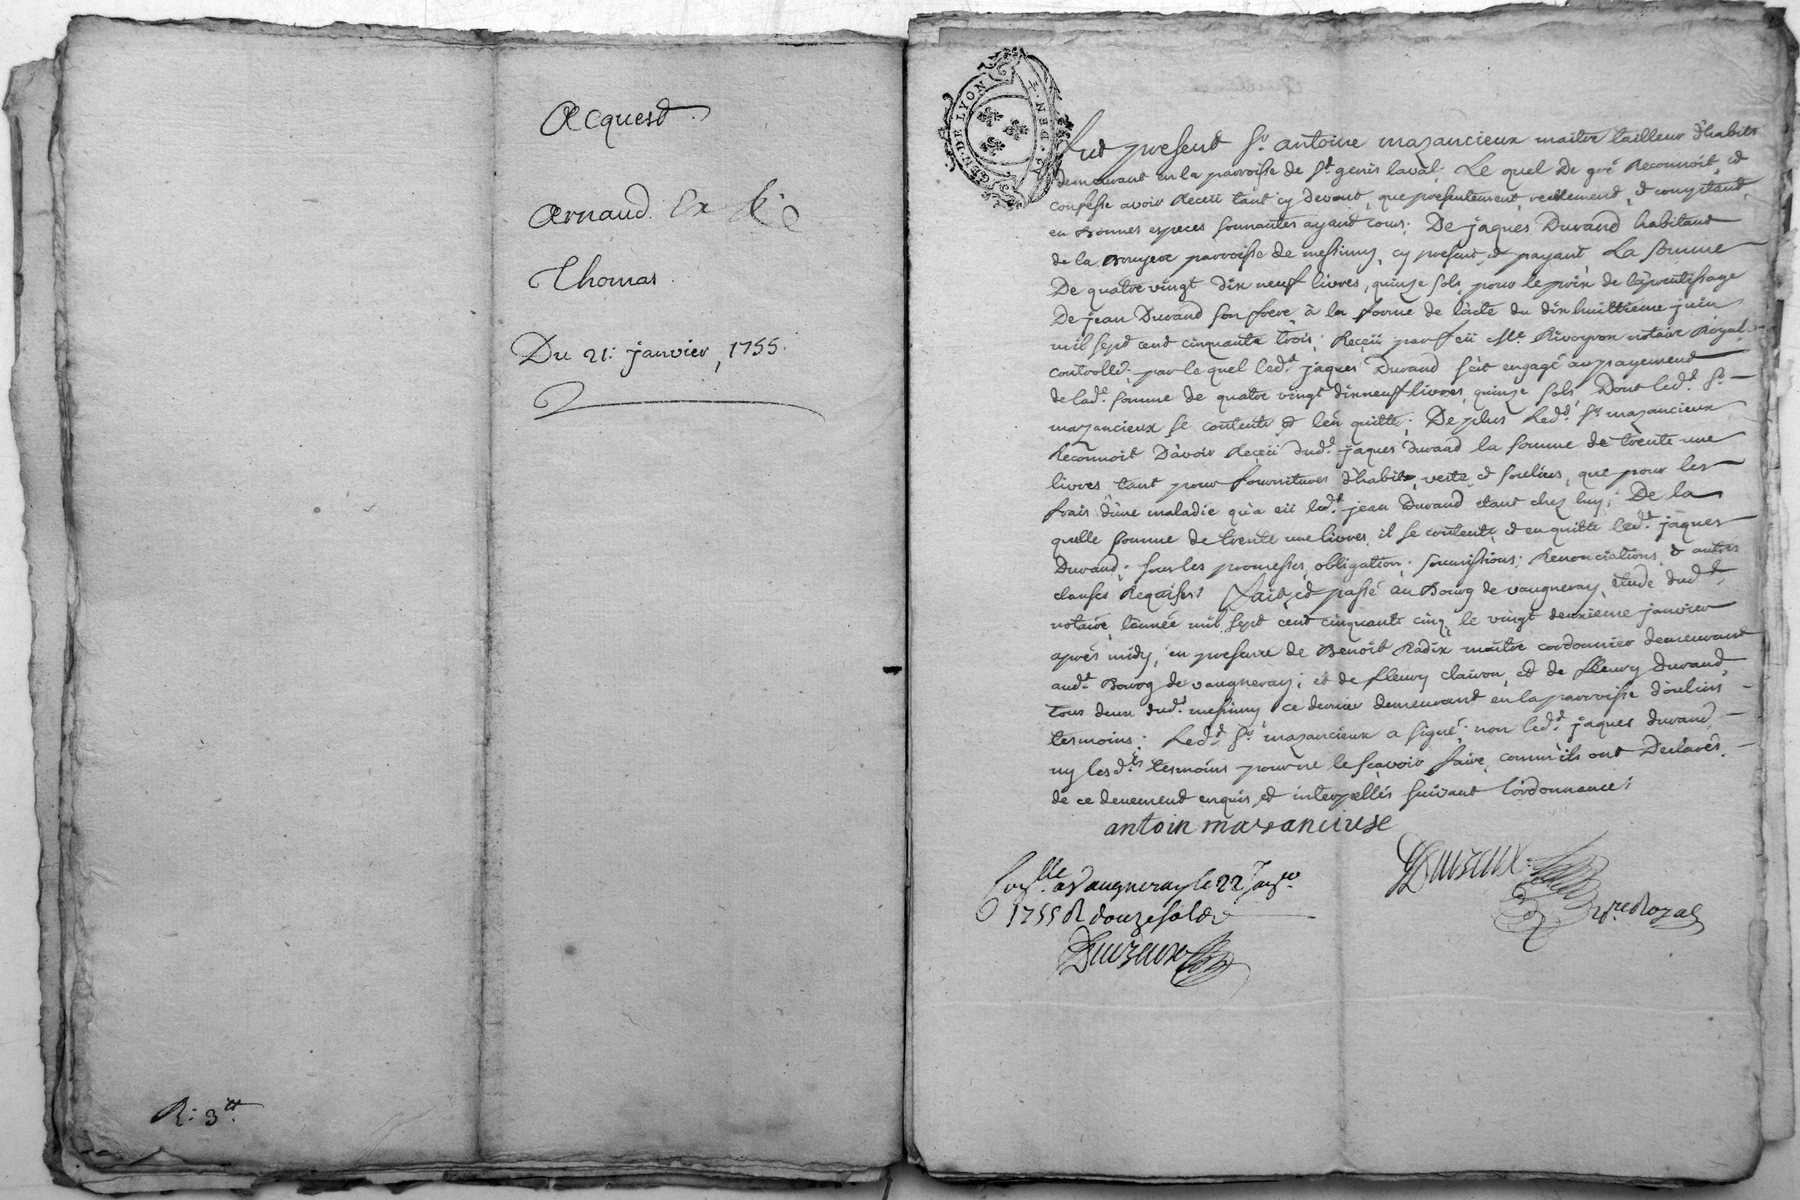 Acquest.
Arnaud. Ex
Thomas.
Du 21: janvier, 1755.
R: 3tt.
GEN. DE LYON
DEN.
Fut present Sr. antoine mazancieux maitre tailleur d'habits
demeurant en la parroisse de St. genis laval; Le quel De gré Reconnoit, et
confesse avoir Receü tant cy devant, que présentement, reellement, et comptant,
en Bonnes especes sonnantes ayant cours; De jaques Durand habitant
de la Bruyere parroisse de messimy, cy present, et payant La somme
De quatre vingt dix neuf livres, quinze sols, pour le prix de l'aprentissage
De jean Durand son frere, à la forme de l'acte du dix huittieme juin
mil sept cent cinquante trois; Receü par feü Me. Rivoyron notaire Royal
controllé; par le quel led.t jaques Durand s'est engagé au payement
de lad.e somme de quatre vingt dix neuf livres, quinze sols, Dont led.t Sr.
mazancieux se contente, et l'en quitte; De plus Led.t Sr. mazancieux
Reconnoit D'avoir Receü dud.t jaques durand la somme de trente une
livres tant pour fournitures d'habits, veste, et souliers, que pour les
frais d'une maladie qu'a eü led.t jean Durand etant chez luy; De la
quelle somme de trente une livres, il se contente, et en quitte led.t jaques
Durand; sous les promesses, obligation, soumissions; Renonciations, & autres
clauses Requises; Fait, et passé au Bourg de vaugneray, étude dud.t
notaire, l'année mil sept cent cinquante cinq, le vingt deuxieme janvier
aprés midy, en presence de Benoit Radix maitre cordonnier demeurant
aud.t Bourg de vaugneray; et de fleury clairon, et de fleury durand,
tous deux dud.t messimy ce dernier demeurant en la parroisse d'oulins
tesmoins; Led.t Sr. mazancieux a signé; non led.t jaques durand,
ny lesd.ts tesmoins pour ne le sçavoir faire, comm'ils ont Déclarés,
de ce deuement enquis, et interpellés suivant l'ordonnance;
antoin mazancieuse
Con.lle a Vaugneray le 22 Janv.er
1755 R douze sols
Nre Royal